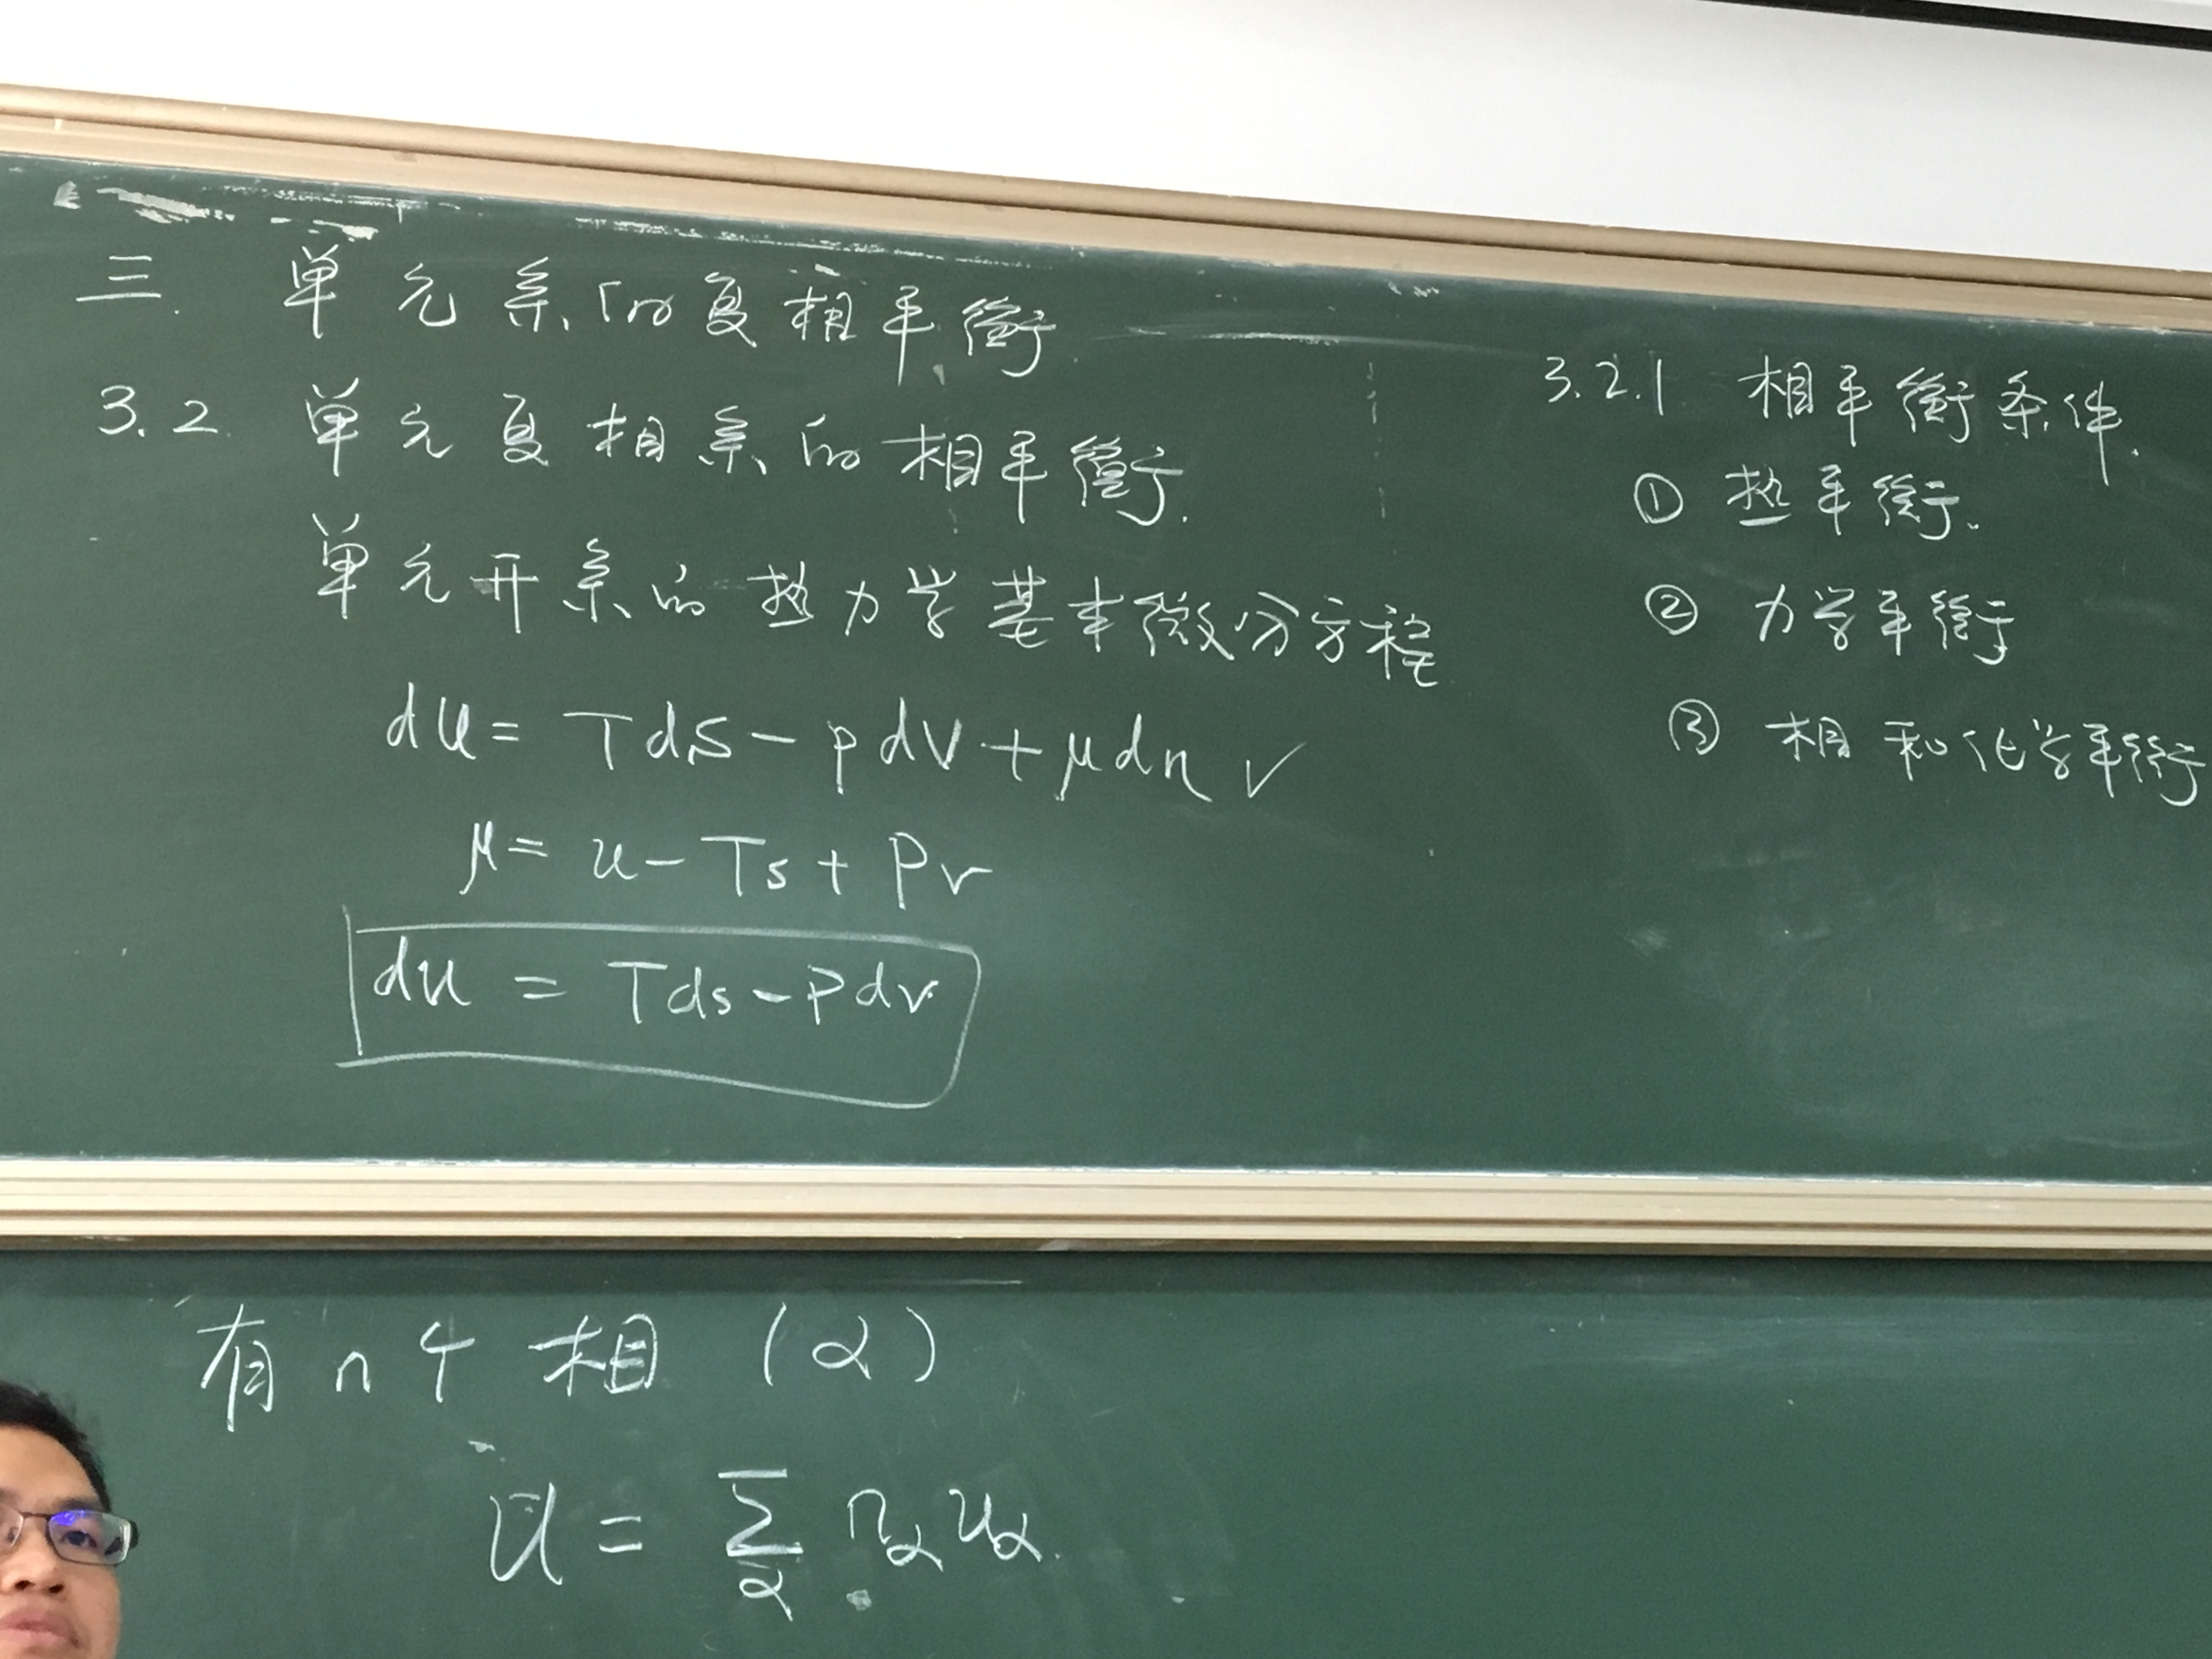 三. 单元系的复相平衡.
3.2. 单元复相系的相平衡.
单元开系的热力学基本微分方程
dU = TdS - pdV + μdn ✓
μ = u - Ts + Pv
du = Tds - Pdv
3.2.1 相平衡条件.
① 热平衡.
② 力学平衡
③ 相和化学平衡
有 n 个相 (α)
U = ∑α nα uα.